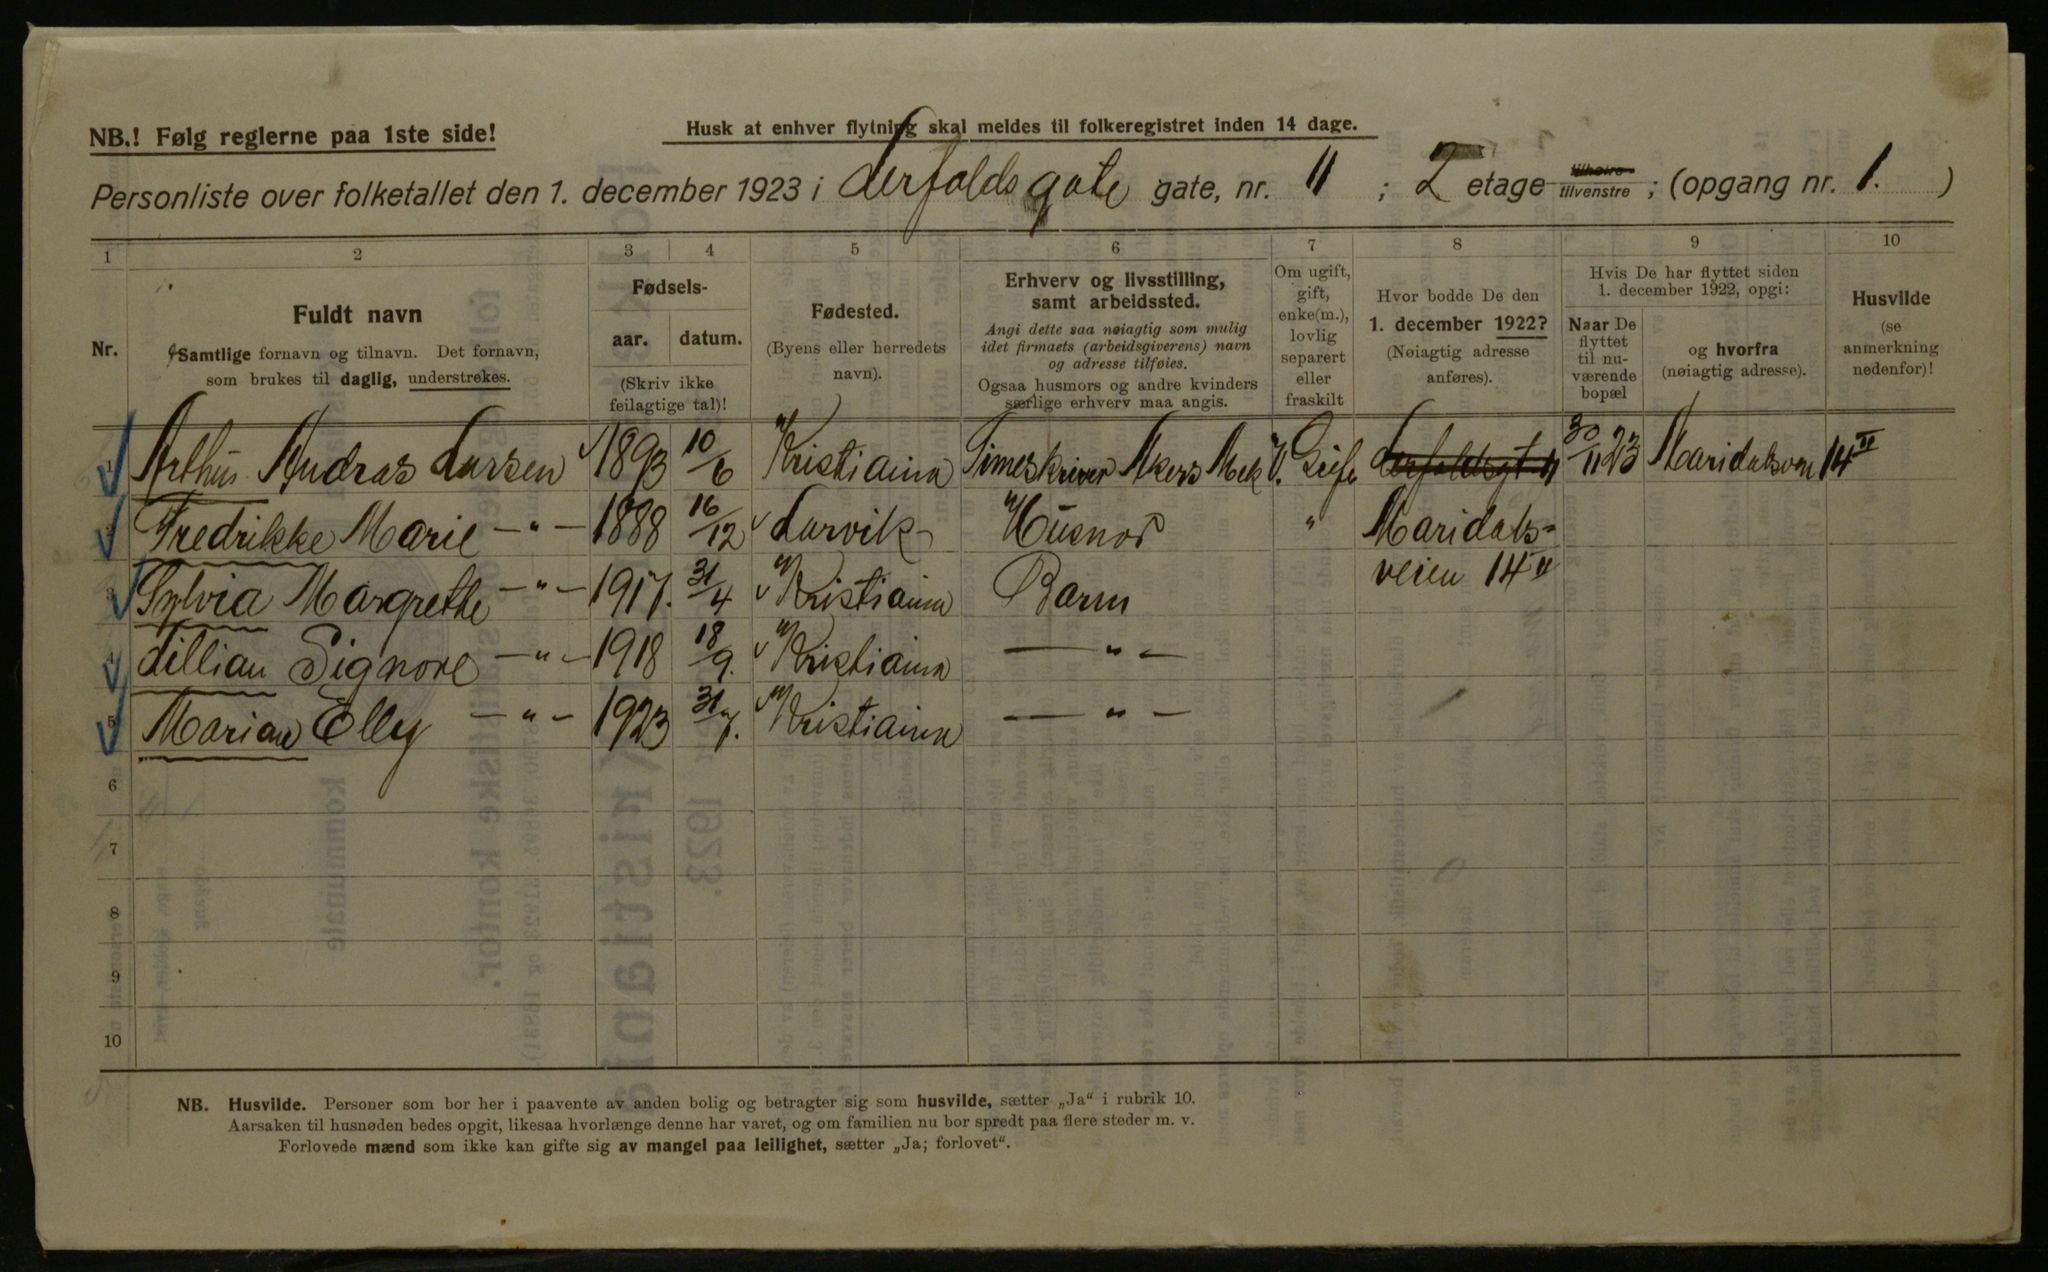 NB.! Følg reglerne paa 1ste side!
Husk at enhver flytning skal meldes til folkeregistret inden 14 dage.
Personliste over folketallet den 1. december 1923 i Lerfaldsgate gate, nr. 11 ; 2 etage tilhøire tilvenstre ; (opgang nr. 1. )
1 2 3 4 5 6 7 8 9 10
Nr.
Fuldt navn
(Samtlige fornavn og tilnavn. Det fornavn,
som brukes til daglig, understrekes.
Fødsels-
aar. datum.
(Skriv ikke
feilagtige tal)!
Fødested.
(Byens eller herredets
navn).
Erhverv og livsstilling,
samt arbeidssted.
Angi dette saa nøiagtig som mulig
idet firmaets (arbeidsgiverens) navn
og adresse tilføies.
Ogsaa husmors og andre kvinders
særlige erhverv maa angis.
Om ugift,
gift,
enke(m.),
lovlig
separert
eller
fraskilt
Hvor bodde De den
1. december 1922?
(Nøiagtig adresse
anføres).
Hvis De har flyttet siden
1. december 1922, opgi:
Naar De
flyttet
til nu-
værende
bopæl
og hvorfra
(nøiagtig adresse).
Husvilde
(se
anmerkning
nedenfor)!
1 Arthur Andras Larsen 1893 10/6 Kristiania Timeskriver Akers Mek V. Gift Lerfaldsgt 11 30/11 23 Maridalsven 14 II
2 Fredrikke Marie -"- 1888 16/12 Larvik Husmor " Maridals-
veien 14 II
3 Sylvia Margrethe -"- 1917. 31/4 Kristiania Barn
4 Lillian Signore -"- 1918 18/9. Kristiania -"-
5 Marian Elly -"- 1923 31/7. Kristiania -"-
6
7
8
9
10
NB. Husvilde. Personer som bor her i paavente av anden bolig og betragter sig som husvilde, sætter „Ja" i rubrik 10.
Aarsaken til husnøden bedes opgit, likesaa hvorlænge denne har varet, og om familien nu bor spredt paa flere steder m. v.
Forlovede mænd som ikke kan gifte sig av mangel paa leilighet, sætter „Ja; forlovet".